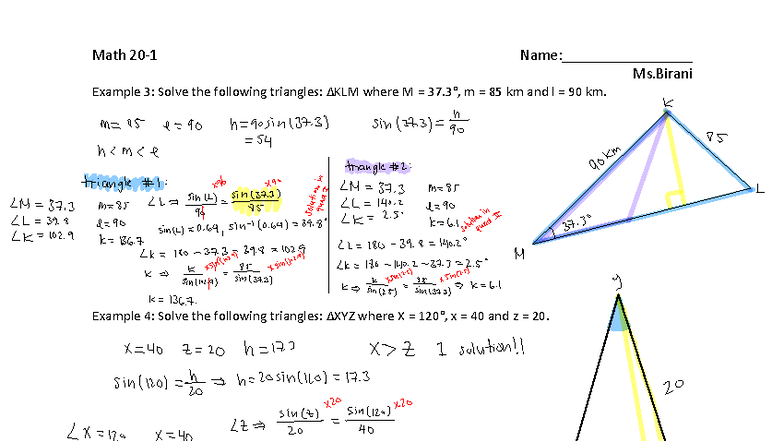 Math 20-1
Name:
Ms.Birani
Example 3: Solve the following triangles: ΔKLM where M = 37.3°, m = 85 km and l = 90 km.
m = 85 ℓ = 90 h = 90 sin(37.3)
= 54
sin(37.3) = h/90
h < m < ℓ
triangle #1:
∠M = 37.3 m = 85
∠L = 39.8 ℓ = 90
∠K = 102.9 k = 136.7
∠L ⇒ sin(L)/90 = sin(37.3)/85
x90 x90
solution in quad I
sin(L) = 0.64, sin⁻¹(0.64) = 39.8°
∠K = 180 - 37.3 - 39.8 = 102.9
k ⇒ k/sin(102.9) = 85/sin(37.3)
xsin(102.9) xsin(102.9)
k = 136.7
triangle #2:
∠M = 37.3 m = 85
∠L = 140.2 ℓ = 90
∠K = 2.5° k = 6.1
solution in quad II
∠L = 180 - 39.8 = 140.2°
∠K = 180 - 140.2 - 37.3 = 2.5°
k ⇒ k/sin(2.5) = 85/sin(37.3) ⇒ k = 6.1
xsin(2.5) xsin(2.5)
K
90 km
85
L
37.3°
M
Example 4: Solve the following triangles: ΔXYZ where X = 120°, x = 40 and z = 20.
x = 40 z = 20 h = 17.3 x > z 1 solution!!
sin(120) = h/20 ⇒ h = 20 sin(120) = 17.3
∠Z ⇒ sin(z)/20 = sin(120)/40
x20 x20
∠X = 120 x = 40
Y
20